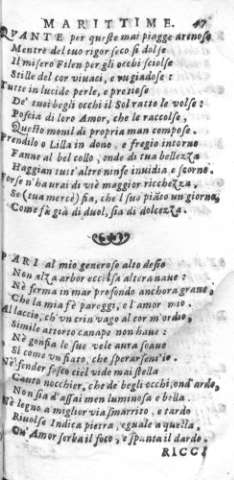 MARITTIME. 47
QVANTE per queste mai piagge arenose
Mentre del tuo rigor seco si dolse
Il misero Filen per gli occhi sciolse
Stille del cor viuaci, e rugiadose:
Tutte in lucide perle, e pretiose
De' tuoi begli occhi il Sol ratto le volse:
Poscia di loro Amor, che le raccolse,
Questo monil di propria man compose.
Prendilo o Lilla in dono, e fregio intorno
Fanne al bel collo, onde di tua bellezza
Haggian tutt'altro ninfe inuidia, e scorno.
Forse n'haurai di viè maggior ricchezza,
Se (tua mercè) fia, che'l suo piãto un giorno,
Come fù già di duol, sia di dolcezza.
PARI al mio generoso alto desio
Non alza arbor eccelsa altera naue:
Nè ferma in mar profondo anchora graue,
Che la mia fè pareggi, e l'amor mio.
Al laccio, ch'vn crin vago al cor m'ordìo,
Simile attorto canape non haue:
Nè gonfia le sue vele aura soaue
Sì come un fiato, che sperar
Nè sender fosco ciel vide mai stella
Cauto nocchier, che de' begli occhi, ond'ardo,
Non sia d'assai men luminosa e bella.
Nè legno a miglior via smarrito, e tardo
Riuolse Indica pietra, eguale a quella,
Ch'Amor serba il foco, e spunta il dardo.
RICCI